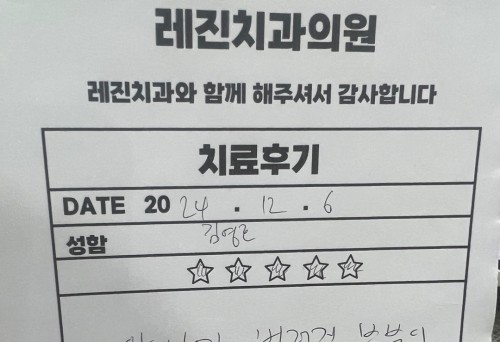 레진치과의원
레진치과와 함께 해주셔서 감사합니다
치료후기
DATE 2024.12.6
성함